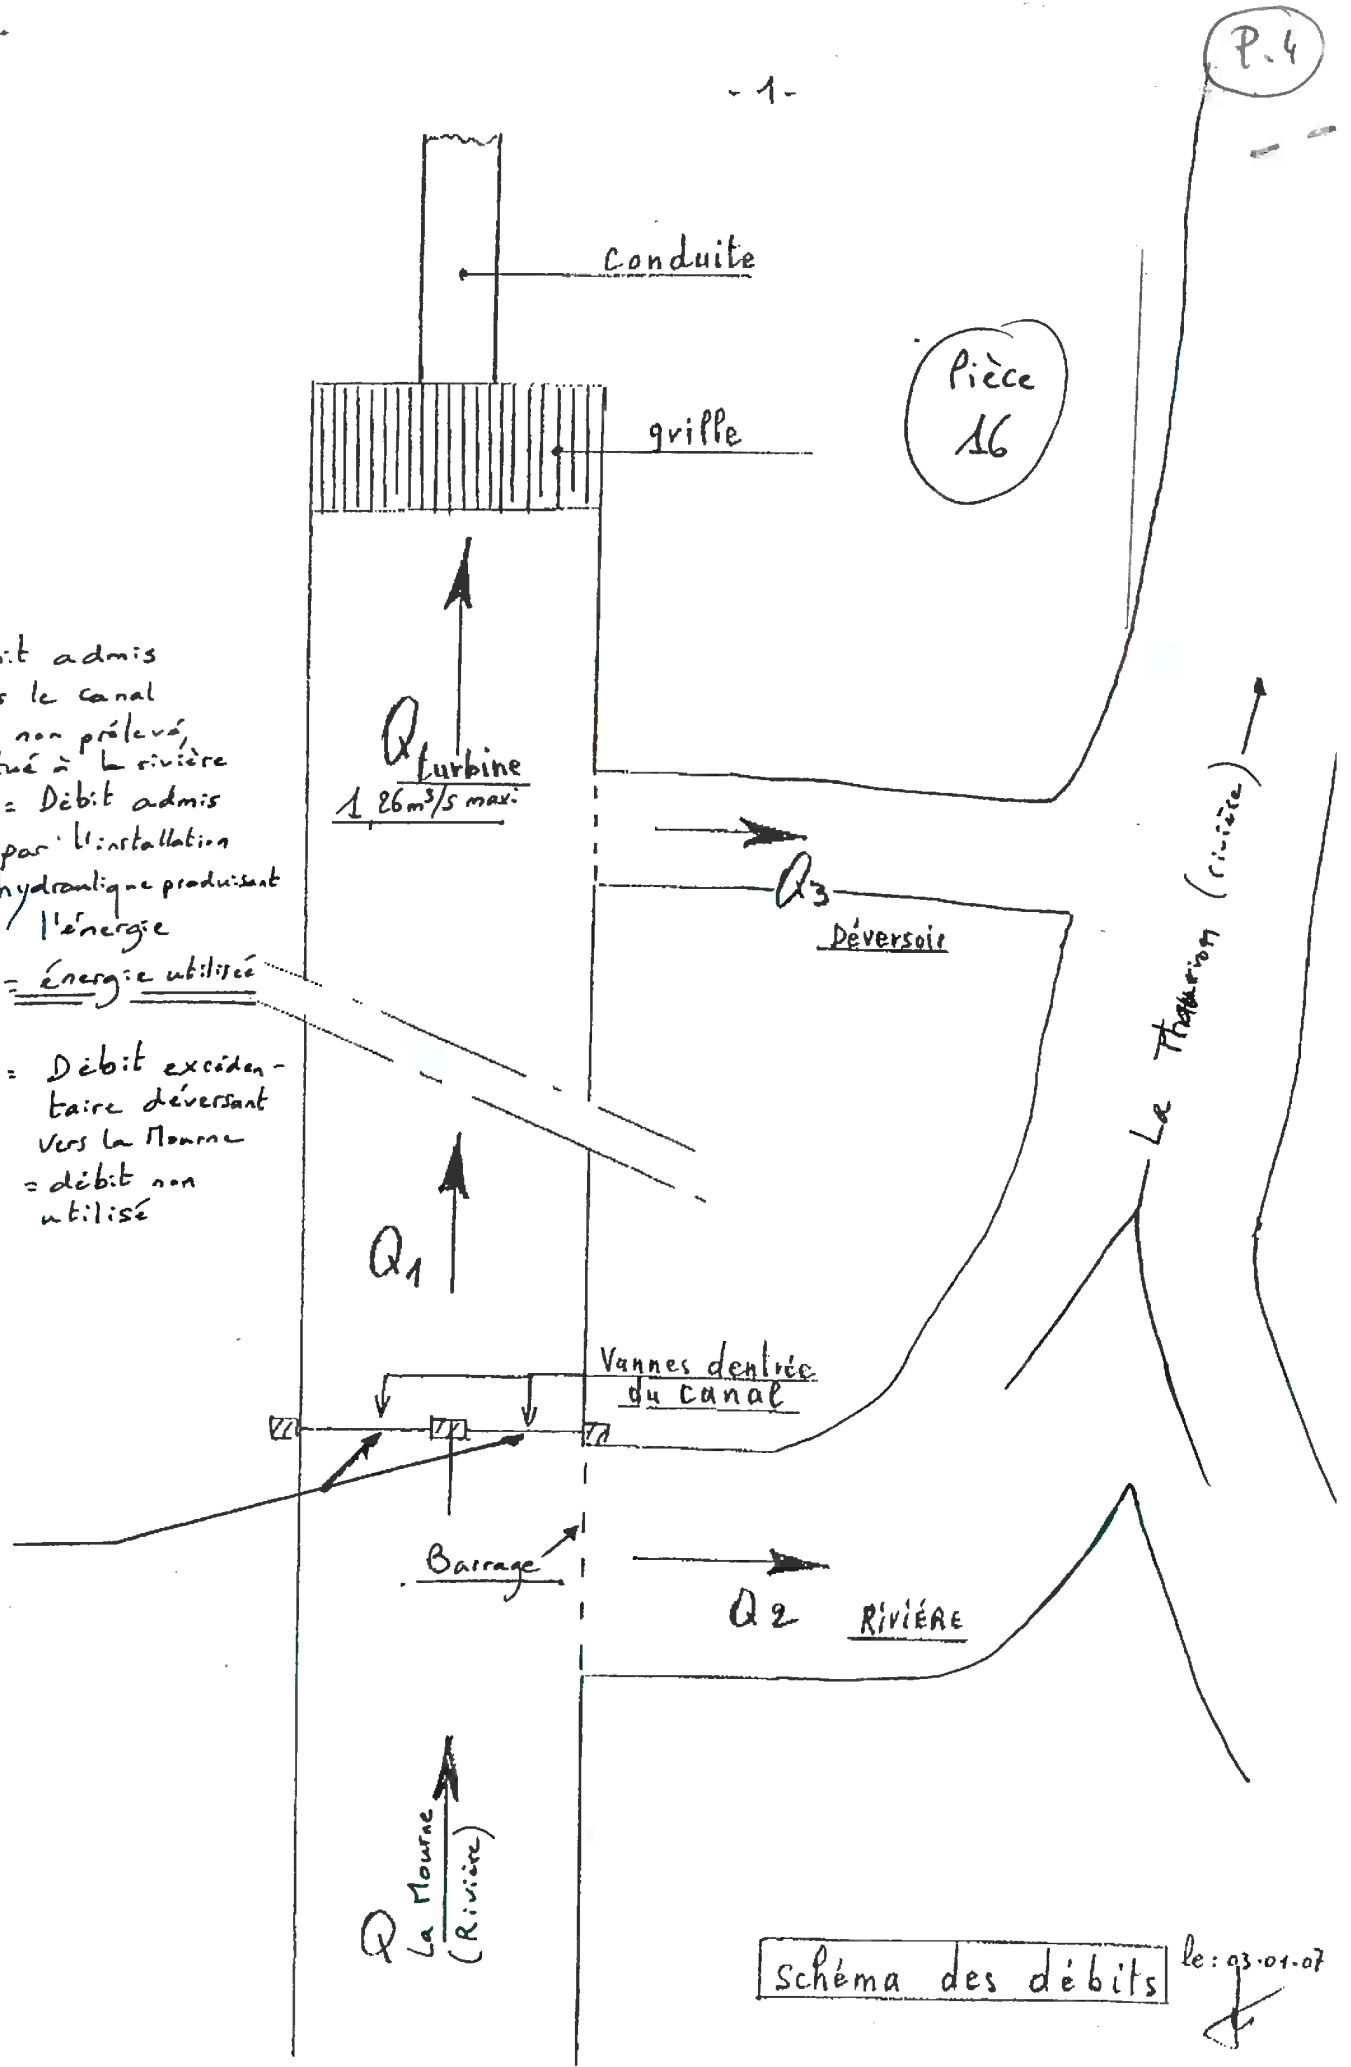 P.4
- 1 -
Conduite
Pièce
16
grille
it admis
s le canal
non prélevé,
tué à la rivière
= Débit admis
par l'installation
hydraulique produisant
l'énergie
= énergie utilisée
= Débit excéden-
taire déversant
vers la Mourne
= débit non
utilisé
Q turbine
1,26 m³/s maxi
Q3
Déversoir
La Thaurion (rivière)
Q1
Vannes dentrée
du canal
Barrage
Q2 RIVIÉRE
Q
La Mourne
(Rivière)
Schéma des débits
le : 03.01.07